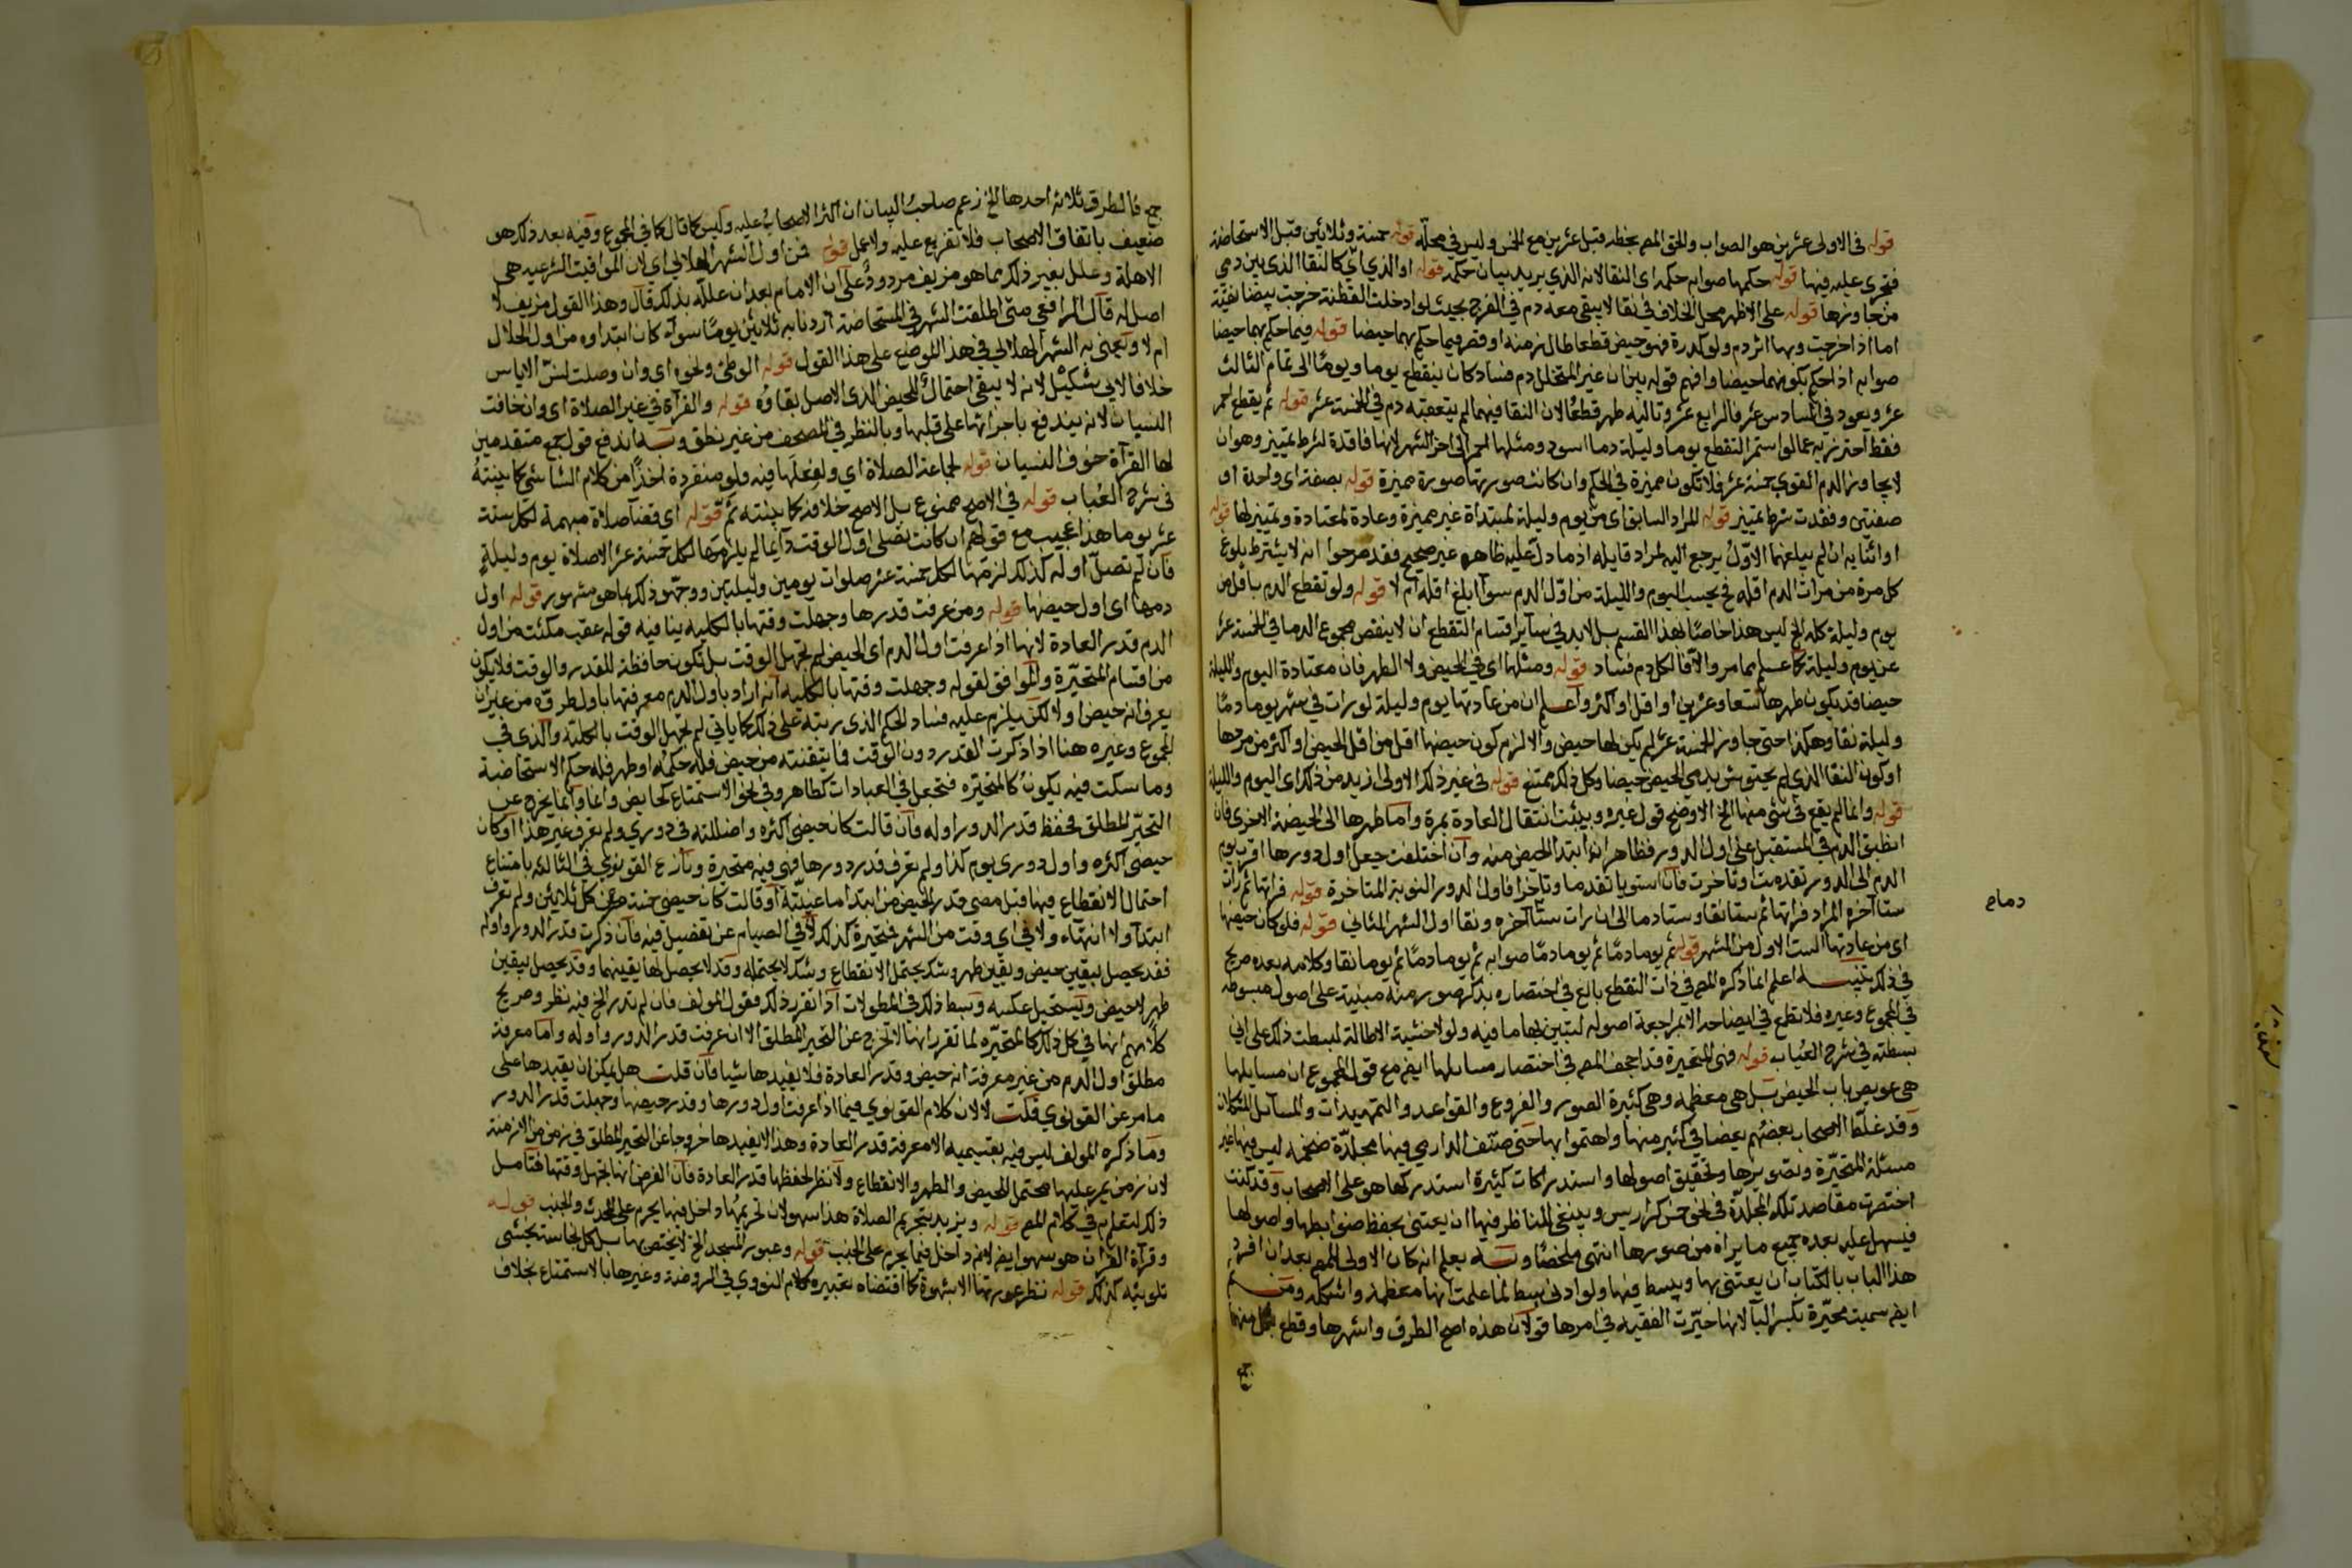 قوله في الاولى عشرين هو الصواب والحق المص بخطه قبل عشرين مع الخمس وليس في محله قوله خمسة وثلاثين قبل الاستحاضة
فتجري عليه فيها قوله حكمها صوابه حكمه اي النقا لانه الذي يريد بيان حكمه قوله او الذي ياتي كالنقا الذي بين دمي
من جاوزها قوله على الاظهر محل الخلاف في نقا لا يبقى معه دم في الفرج بحيث لو ادخلت القطنة خرجت بيضا نقية
اما اذا خرجت وبها اثر دم ولو كدرة فهو حيض قطعا طال زمنه او قصر فيما حكم بهما حيضا قوله فيما حكم بهما حيضا
صوابه اذا حكم بكونهما حيضا وافهم قوله بين ان غير المتخلل دم فساد كان ينقطع يوما ويوما الى تمام الثالث
عشر ويعود في السادس عشر فالرابع عشر وتاليه طهر قطعا لان النقا فيهما لم يتعقبه دم في الخمسة عشر قوله ثم يقطع احمر
فقط احترز به عما لو استمر التقطع يوما وليلة دما اسود ومثلها احمر الى اخر الشهر لانها فاقدة لشرط تمييز وهو ان
لا يجاوز الدم القوي خمسة عشر فلا تكون مميزة في الحكم وان كانت صورتها صورة مميزة قوله بصفة اي واحدة او
صفتين وفقدت شرط تمييز قوله المراد السابق اي من يوم وليلة لمبتداة غير مميزة وعادة لمعتادة وتمييز لها قوله
او اثنا به ان لم يبلغهما الاول يرجع اليه لمراد قايله اذ ما دل عليه ظاهره غير صحيح فقد صرحوا انه لا يشترط بلوغ
كل مرة من مرات الدم اقله في يحسب اليوم والليلة من اول الدم سوا ابلغ اقله ام لا قوله ولو تقطع الدم باقل من
يوم وليلة كله الخ ليس هذا خاصا بهذا القسم بل لا بد في ساير اقسام التقطع ان لا ينقص مجموع الدما في الخمسة عشر
عن يوم وليلة كما علم مما مر والا فالكل دم فساد قوله ومثلها اي في الحيض ولا الطهر فان معتادة اليوم والليلة
حيضا قد يكون طهرها تسعا وعشرين او اقل او اكثر واعلم ان من عادتها يوم وليلة لو رات في شهر يوما دما
وليلة نقا وهكذا حتى جاوز الخمسة عشر لم يكن لها حيض والا لزم كون حيضها اقل من اقل الحيض او اكثر من مردها
او كون النقا الذي لم يحتوش بدمي الحيض حيضا وكل ذلك ممتنع قوله في غير ذلك الاولى ازيد من ذلك اي اليوم والليلة
قوله وانما لم يقع في شي منها الخ الاوضح قول غيره وبنيت انتقال العادة بمرة واما طهرها الى الحيضة الاخرى فان
انطبق الدم في المستقبل على اول الدور فظاهر انه ابتدا الحيض منه وان اختلفت جعل اول دورها اقرب يوم
الدم الى الدور تقدمت او تاخرت فان استويا تقدما وتاخرا فاول الدور النوبة المتاخرة قوله فراتها ثم رات
ستا آخره المراد فراتها ثم ستا نقا وستا دما الى ان رات ستا آخره ونقا اول الشهر الثاني قوله فلو كان حيضها
اي من عادتها الست الاول من الشهر قوله ثم يوما دما ثم يوما دما صوابه ثم يوما دما ثم يوما نقا وكلامه بعده صريح
في ذلك تنبيه اعلم انما ذكره المص في ذات التقطع بالغ في اختصاره بذكر صور منه مبنية على اصول مبسوطة
في المجموع وغيره فلا تطمع في ايضاحه الا بمراجعة اصوله لتبين بها ما فيه ولولا خشية الاطالة لبسطت ذلك على اني
بسطته في شرح العباب قوله فهي المتحيرة قد اجحف المص في اختصار مسايلها ايضا مع قول المجموع ان مسايلها
هي عويص باب الحيض بل هي معظمه وهي كثيرة الصور والفروع والقواعد والتمهيدات والمسائل المشكلات
وقد غلط الاصحاب بعضهم بعضا في كثير منها واهتموا بها حتى صنف الدارمي فيها مجلدة ضخمة ليس فيها غير
مسئلة المتحيرة وتصويرها وتحقيق اصولها واستدراكات كثيرة استدركها هو على الاصحاب وقد كنت
اختصرت مقاصد تلك المجلدة في نحو خمس كراريس وينبغي للناظر فيها ان يعتني بحفظ ضوابطها واصولها
فيسهل عليه بعده جميع ما يراه من صورها انتهى ملخصا وبه يعلم انه كان الاولى للمص بعد ان افرد
هذا الباب بالكتاب ان يعتني بها ويبسط فيها ولو ادنى بسط لما علمت انها معظمه واشكله ومن ثم
ايضا سميت محيرة بكسر اليا لانها حيرت الفقيه في امرها قولان هذه اصح الطرق واشهرها وقطع بكل منهما
جمع
دما صح
جمع فالطرق ثلاثة احدها الخ زعم صاحب البيان ان اكثر الاصحاب عليه وليس كما قال كما في المجموع وفيه بعد ذلك هو
ضعيف باتفاق الاصحاب فلا تفريع عليه ولا عمل قوله فمن اول الشهر الهلالي اي لان المواقيت الشرعية هي
الاهلة وعلل بغير ذلك بما هو مزيف مردود على ان الامام بعد ان علله بذلك قال وهذا القول مزيف لا
اصل له قال الرافعي متى اطلقت الشهر في المستحاضة اردنا به ثلاثين يوما سوا كان ابتداوه من اول الهلال
ام لا ويعنى به الشهر الهلالي في هذا الموضع على هذا القول قوله الوطئ ونحوه اي وان وصلت لسن الاياس
خلافا لابي شكيل لانه لا يبقى احتمال للحيض الذي الاصل بقاوه قوله والقراة في غير الصلاة اي وان خافت
النسيان لانه يندفع باجرائها على قلبها وبالنظر في المصحف من غير نطق وبه اندفع قول جمع متقدمين
لها القرآة خوف النسيان قوله لجماعة الصلاة اي ولفعلها فيه ولو منفردة اخذا من كلام الشاشي كما بينته
في شرح العباب قوله في الاصح ممنوع بل الاصح خلافه كما بينته ثم قوله اي قضا صلاة مبهمة لكل ستة
عشر يوما هذا عجيب مع قولهم ان كانت تصلي اول الوقت دايما لم يلزمها لكل خمسة عشر الا صلاة يوم وليلة
فان لم تصل اوله كذلك لزمتها لكل خمسة عشر صلوات يومين وليلتين ووجهوا ذلك بما هو مشهور قوله اول
دمها اي اول حيضها قوله ومن عرفت قدرها وجهلت وقتها بالكلية ينافيه قوله عقبه مكثت من اول
الدم قدر العادة لانها اذا عرفت اول الدم اي الحيض لم تجهل الوقت بل تكون حافظة للقدر والوقت فلا يكون
من اقسام المتحيرة والموافق لقوله وجهلت وقتها بالكلية انه اراد باول الدم معرفتها باول طروه من غير ان
يعرف انه حيض او لا لكن يلزم عليه فساد الحكم الذي رتبه على ذلك كما ياتي لم تجهل الوقت بالكلية والذي في
المجموع وغيره هنا اذا ذكرت القدر دون الوقت فما تيقنته من حيض فله حكمه او طهر فله حكم الاستحاضة
وما سكت فيه يكون كالمتحيرة فتجعل في العبادات كطاهر وفي نحو الاستمتاع كحايض وانما يخرج عن
التحير المطلق بحفظ قدر الدور واوله فان قالت كان حيضي اكثره واضللته في دوري ولم تعرف غير هذا او كان
حيضي اكثره واول دوري يوم كذا ولم تعرف قدر دورها فهي فيه متحيرة ونازع القونوي في الثالثة بامتناع
احتمال الانقطاع فيها قبل مضي قدر الحيض من ابتدا ما عينته او قالت كان حيضي خمسة عشر كل ثلاثين ولم تعرف
ابتداء ولا انتهاء ولا في اي وقت من الشهر فمتحيرة كذلك لا في الصيام عن تفصيل فيه فان ذكرت قدر الدور واوله
فقد يحصل بيقين حيض ويقين طهر وشك يحتمل الانقطاع وشك لا يحتمله وقد لا يحصل لها يقينهما وقد يحصل بيقين
طهر لا حيض ويستحيل عكسه وبسط ذلك في المطولات اذا تقرر ذلك فقول المولف فان لم تدر الخ فيه نظر وصريح
كلامهم انها في كل ذلك كالمتحيرة لما تقرر انها لا تخرج عن التحير المطلق الا ان عرفت قدر الدور واوله واما معرفة
مطلق اول الدم من غير معرفة انه حيض وقدر العادة فلا يفيدها شيا فان قلت هل يمكن ان يقيدها على
ما مر عن القونوي قلت لا لان كلام القونوي فيما اذا عرفت اول دورها وقدر حيضها وجهلت قدر الدور
وما ذكره المولف ليس فيه بقسيميه الا معرفة قدر العادة وهذا لا يفيدها خروجا عن التحير المطلق في زمن من الازمنة
لان زمن يمر عليها محتمل للحيض والطهر والانقطاع ولا نظر لحفظها قدر العادة فان الفرض انها تجهل وقتها فتامل
ذلك لتعلم به في كلام المص قوله ويزيد بتحريم الصلاة هذا سهو لان تحريمها داخل فيما يحرم على المحدث والجنب قوله
وقرآة القرآن هو سهو ايضا لانه داخل فيما يحرم على الجنب قوله وعبور المسجد الخ لا يختص بها بل كل نجاسة يخشى
تلويثه كذلك قوله نظر عورتها الا بشهوة كما اقتضاه تعبيره كلام النووي في الروضة وغيرها بالاستمتاع بخلاف